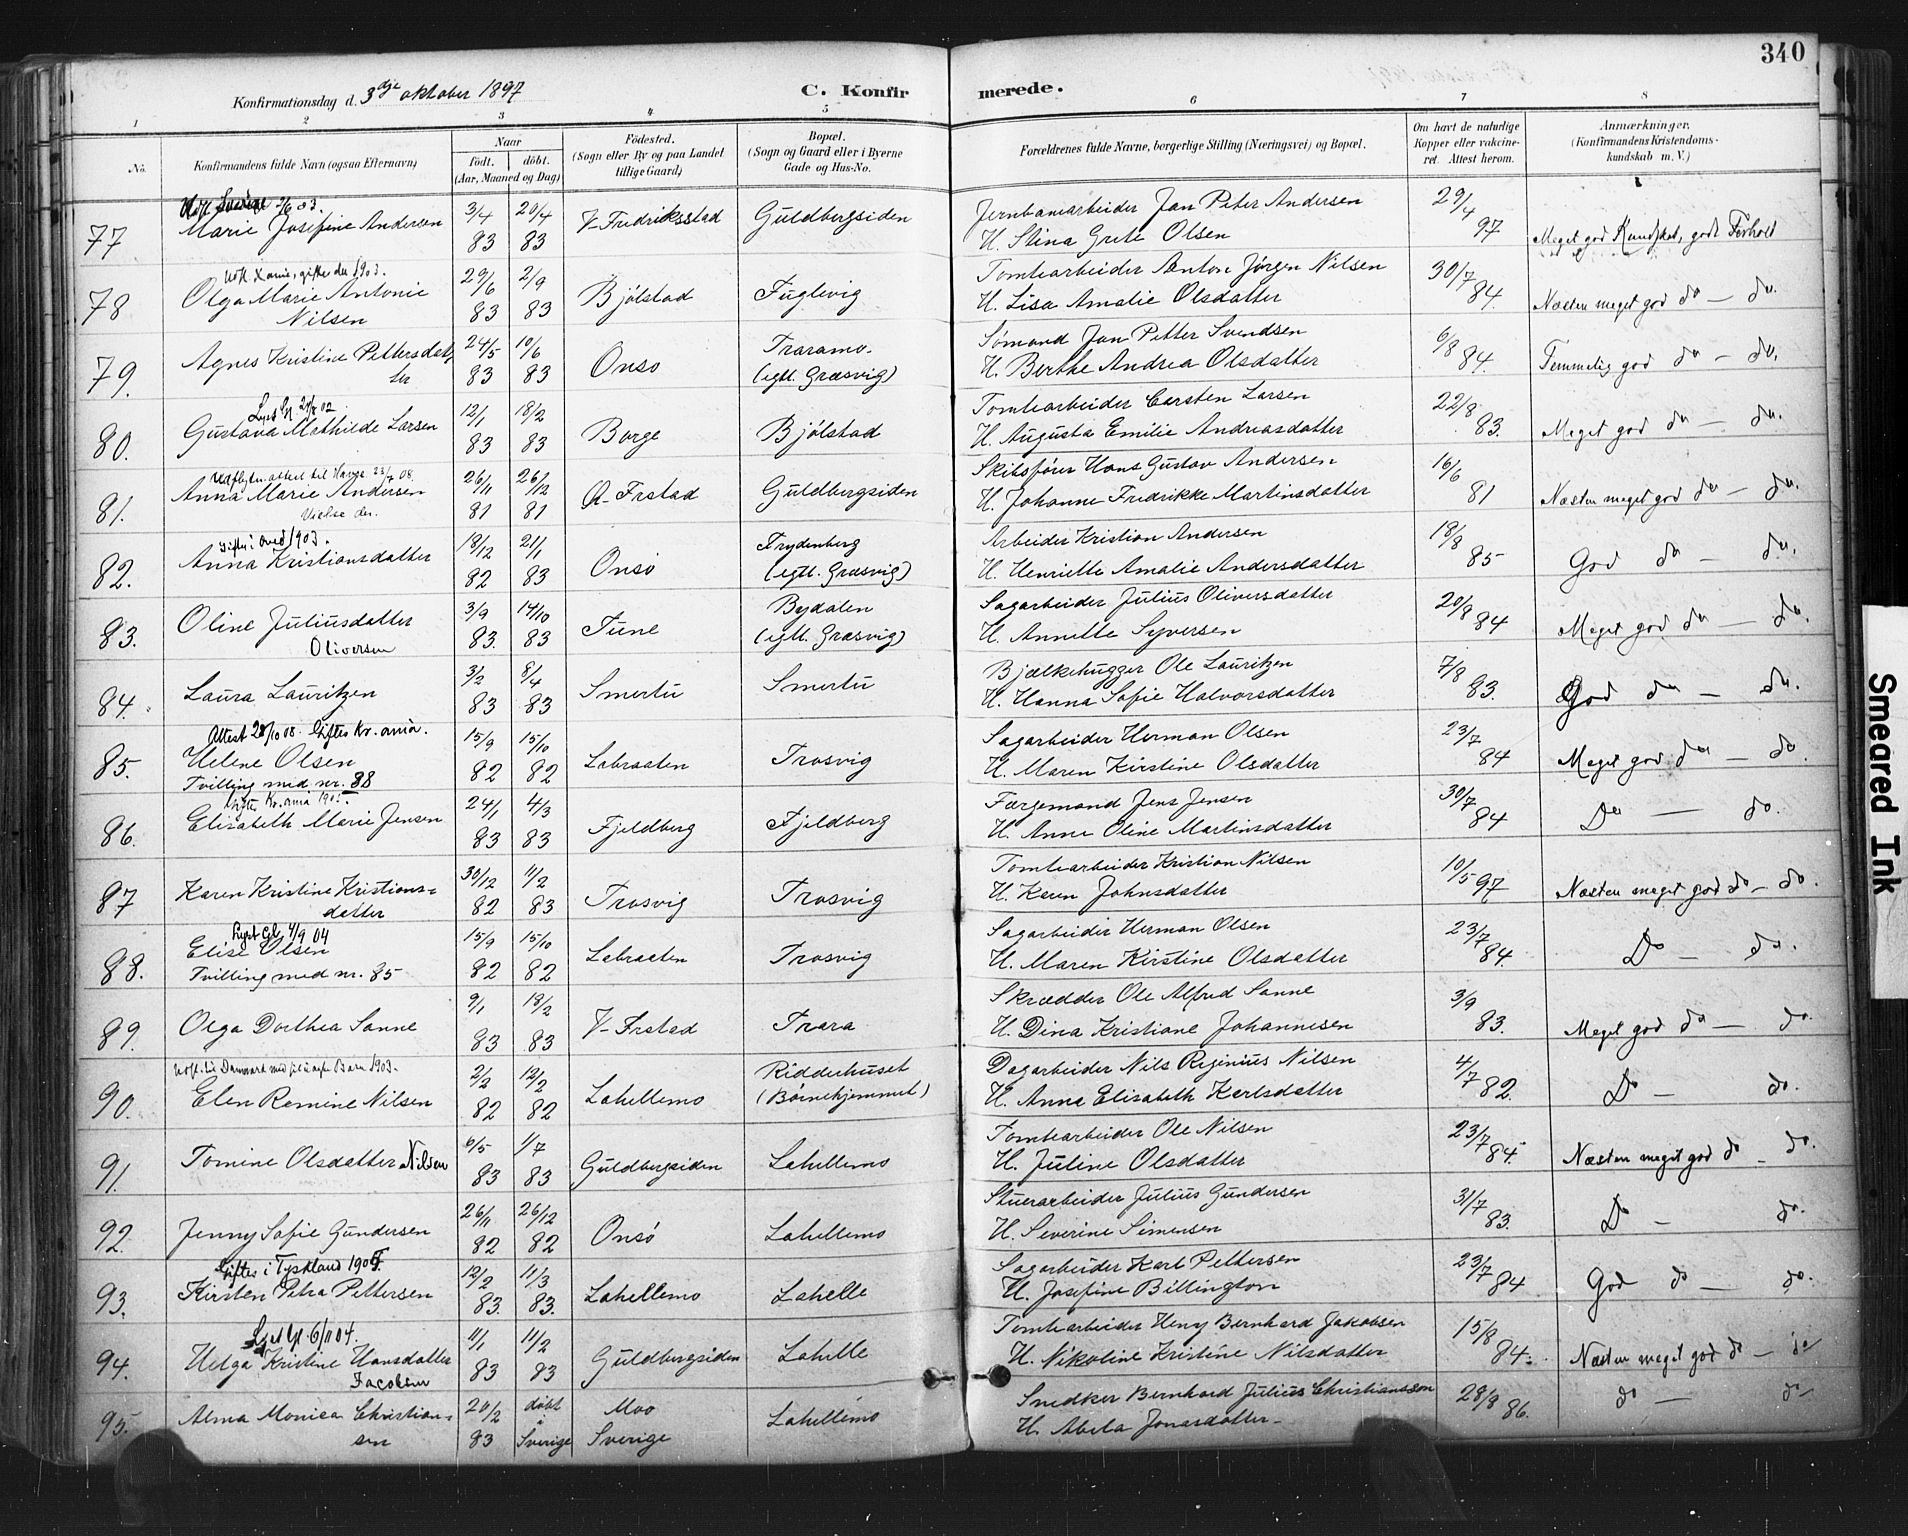 340
Konfirmationsdag d. 3dje oktober 1897 C. Konfirmerede.
1 2 3 4 5 6 7 8
No. Konfirmandens fulde Navn (ogsaa Efternavn) Naar födt. döbt. (Aar, Maaned og Dag) Födested. (Sogn eller By og paa Landet tillige Gaard) Bopæl. (Sogn og Gaard eller i Byerne Gade og Hus-No. Forældrenes fulde Navne, borgerlige Stilling (Næringsvei) og Bopæl. Om havt de naturlige Kopper eller vakcineret. Attest herom. Anmærkninger. (Konfirmandens Kristendomskundskab m. V.)
Sverige 83.
77 Marie Josefine Andersen 3/4 83 20/4 83 V-Fredriksstad Guldbergsiden Jernbanearbeider Jan Peter Andersen H. Stina Grete Olsen 29/4 97 Meget god Kundskab, godt Forhold
giftes der 1903.
78 Olga Marie Antonie Nilsen 29/6 83 2/9 83 Bjölstad Fuglevig Tomtearbeider Anton Jörgen Nilsen H. Lisa Amalie Olsdatter 30/7 84. Næsten meget god do — do.
79. Agnes Kristine Pettersdatter 24/5 83 10/6 83 Onsö Traramo. (egtl. Græsvig) Sömand Jan Petter Svendsen H. Berthe Andrea Olsdatter 6/8 84. Temmelig god do — do.
Lyst 02
80. Gustava Mathilde Larsen 12/1 83 18/2 83 Borge Bjölstad Tomtearbeider Carsten Larsen H. Augusta Emilie Andreasdatter 22/8 83. Meget god do — do.
attest til 23/7 08.
81. Anna Marie Andersen 26/11 81 26/12 81 Gl-Frstad Guldbergsiden Skibsförer Hans Gustav Andersen H. Johanne Fredrikke Martinsdatter 16/6 81 Næsten meget god do — do.
Vielse der.
giftes i 1903.
82. Anna Kristiansdatter 18/12 82 21/1 83 Onsö Frydenberg (egtl. Græsvig) Arbeider Kristian Andersen H. Henriette Amalie Andersdatter 18/8 85 God do — do.
83. Oline Juliusdatter Oliversen 3/9 83. 14/10 83 Tune Bydalen (egtl. Græsvig) Sagarbeider Julius Oliversdatter H. Annette Syversen 20/8 84 Meget god do — do.
84. Laura Lauritzen 3/2 83 8/4 83 Smertu Smertu Bjælkehugger Ole Lauritzen H. Hanna Sofie Halvorsdatter 7/8 83. God do — do.
Attest 28/10 08. Giftes Kr.ania.
85. Helene Olsen 15/9 82 15/10 82 Labraaten Trosvig Sagarbeider Herman Olsen H. Maren Kirstine Olsdatter 23/7 84 Meget god do — do.
Tvilling med nr. 88
giftes Kr.ania 1905.
86. Elisabeth Marie Jensen 24/1 83 4/3 83 Fjeldberg Fjeldberg Færgemand Jens Jensen H. Anne Oline Martinsdatter 30/7 84 Do — do.
87 Karen Kristine Kristiansdatter 30/12 82 11/2 83 Trosvig Trosvig Tomtearbeider Kristian Nilsen H. Karen Johnsdatter 10/5 97 Næsten meget god do — do.
Lyst Gl. 4/9 04
88. Elise Olsen 15/9 82 15/10 82 Labraaten Trosvig Sagarbeider Herman Olsen H. Maren Kirstine Olsdatter 23/7 84. Do — do.
Tvilling med nr. 85
89. Olga Dorthea Sanne 9/1 83 18/2 83 V-Frstad Trara Skrædder Ole Alfred Sanne H. Dina Kristiane Johannesen 3/9 83. Meget god do — do.
til Danmark med Barn 1903.
90. Elen Remine Nilsen 2/2 82 12/2 82 Lahellemo Ridderhuset (Börnehjemmet) Dagarbeider Nils Reginius Nilsen H. Anna Elisabeth Karlsdatter 4/7 82. Do — do.
91. Tomine Olsdatter Nilsen 6/5 83 1/7 83 Guldbergsiden Lahellemo Tomtearbeider Ole Nilsen H. Juline Olsdatter 23/7 84. Næsten meget god do — do.
92. Jenny Sofie Gundersen 26/11 82 26/12 82 Onsö Lahellemo Stuerarbeider Julius Gundersen H. Severine Simensen 31/7 83. Do — do.
Giftes i Tyskland
93. Kirsten Petra Pettersen 12/2 83. 11/3 83. Lahellemo Lahelle Sagarbeider Karl Pettersen H. Josefine Billington 23/7 84 God do — do.
Lyst Gl. 6/11 04.
94. Helga Kristine Hansdatter Jacobsen 11/1 83 11/2 83 Guldbergsiden Lahelle Tomtearbeider Heny Bernhard Jakobsen H. Nikoline Kristine Nilsdatter 15/8 84. Næsten meget god do — do
95. Alma Monica Christiansen 20/2 83 döbt i Sverige Moo Sverige Lahellemo Snedker Bernhard Julius Christianssen H. Abela Jonasdatter 28/8 86. do — do
Smeared Ink